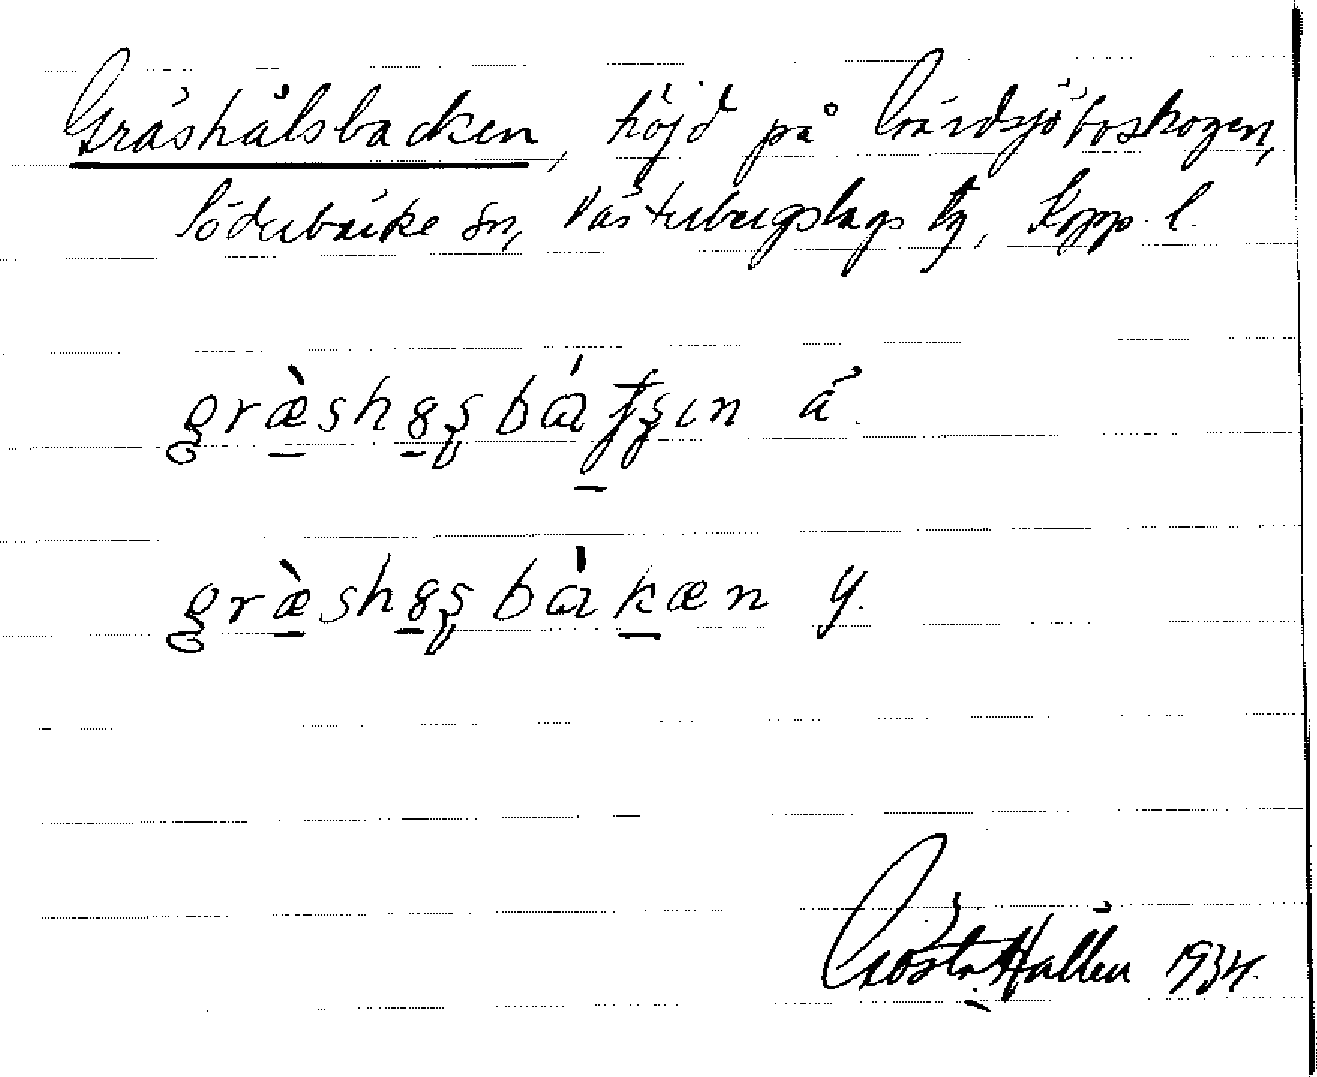 Gräshålsbacken, höjd på Gärdsjöboskogen,
Söderbärke sn, Västerbergslags tg, Kopp. l.
græsh
græsh y.
Gösta Hallén 1934.